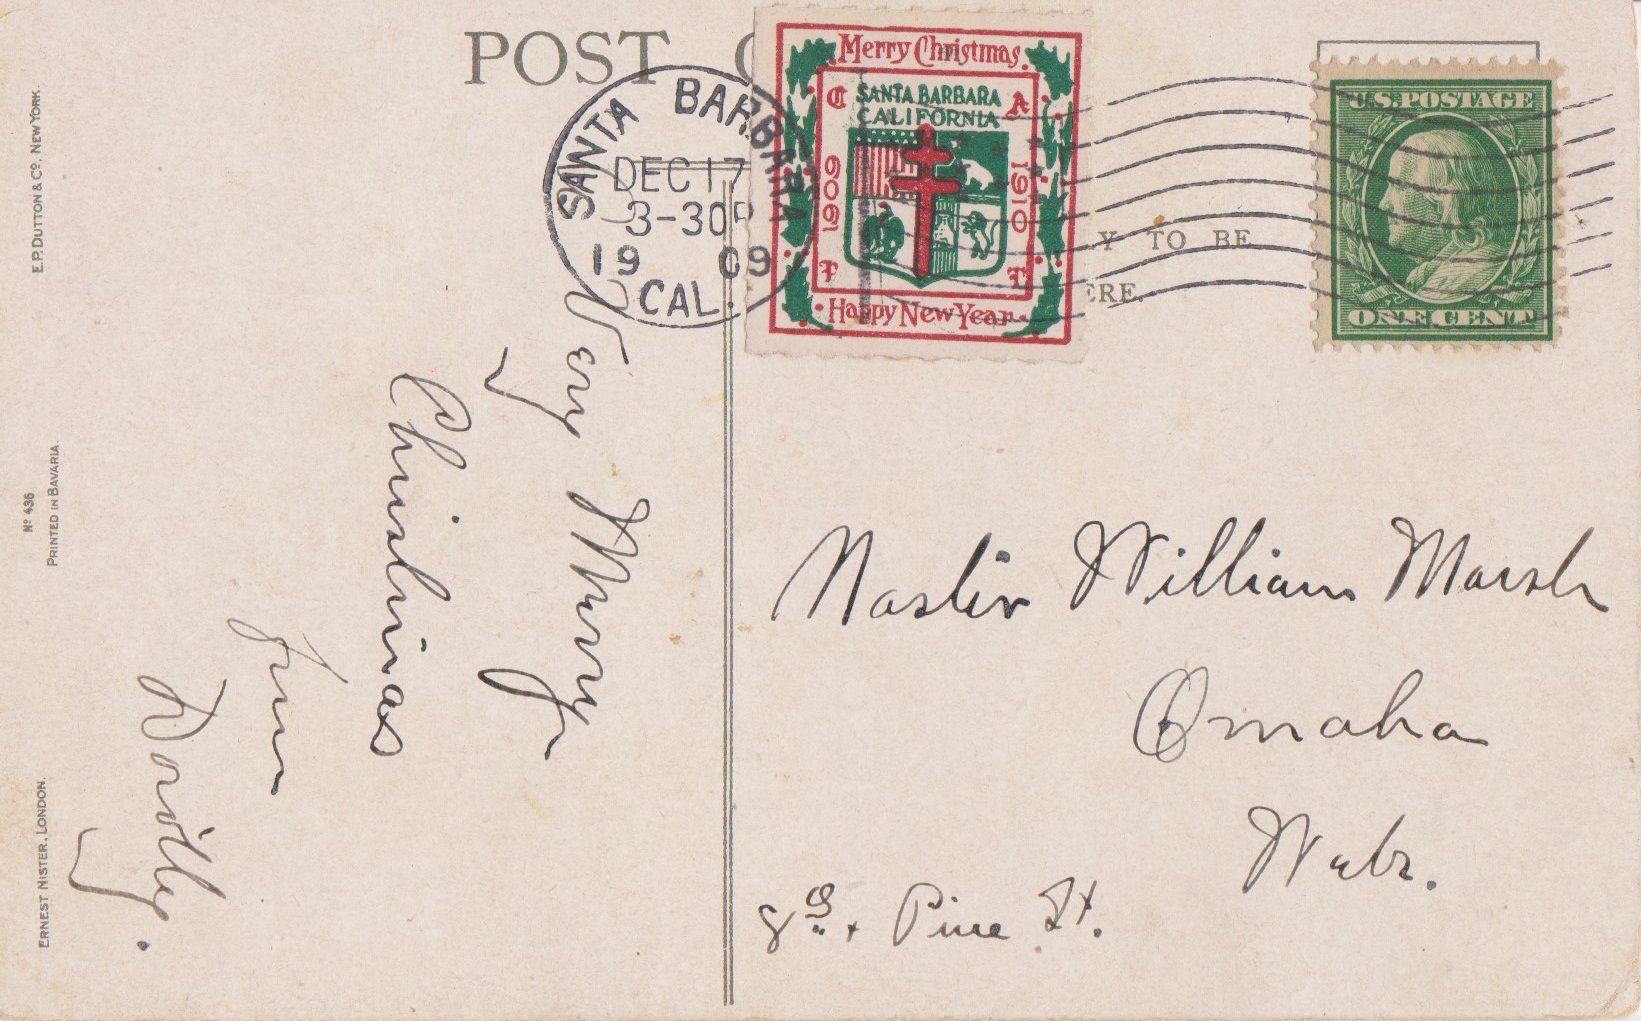 POST C
SANTA BARBARA
DEC 17
3-30P
1909
CAL.
Merry Christmas
SANTA BARBARA
CALIFORNIA
C A
1909 1910
T T
Happy New Year
U.S. POSTAGE
ONE CENT
Y TO BE
ERE.
Very Merry
Christmas
from
Dorothy.
Master William Marsh
Omaha
Nebr.
8th + Pine St.
E.P. DUTTON & CO. NEW YORK.
No 436
PRINTED IN BAVARIA.
ERNEST NISTER, LONDON.